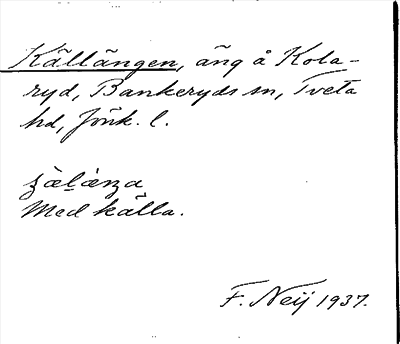 Källängen, äng å Kola-
ryd, Bankeryds sn, Tveta
hd, Jönk. l.
Med källa.
F. Neij 1937.